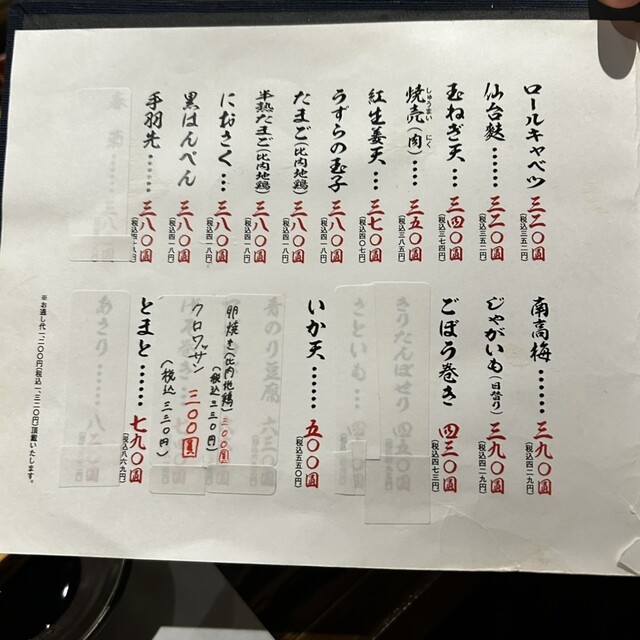 ロールキャベツ 三二〇圓 (税込三五二円)
仙台麩…… 三二〇圓 (税込三五二円)
玉ねぎ天… 三四〇圓 (税込三七四円)
焼売(肉)… 三五〇圓 (税込三八五円)
しゅうまい にく
紅生姜天… 三七〇圓 (税込四〇七円)
うずらの玉子 三八〇圓 (税込四一八円)
たまご(比内地鶏) 三八〇圓 (税込四一八円)
半熟たまご(比内地鶏) 三八〇圓 (税込四一八円)
におさく… 三八〇圓 (税込四一八円)
黒はんぺん 三八〇圓 (税込四一八円)
手羽先…… 三八〇圓 (税込四一八円)
春菊
南高梅…… 三九〇圓 (税込四二九円)
じゃがいも(日替り) 三九〇圓 (税込四二九円)
ごぼう巻き 四三〇圓 (税込四七三円)
きりたんぽせり 四五〇圓
さといも
いか天…… 五〇〇圓 (税込五五〇円)
青のり豆腐 六三〇圓
卵焼き(比内地鶏) 三〇〇圓 (税込三三〇円)
クロワッサン 三〇〇圓 (税込三三〇円)
とまと…… 七九〇圓 (税込八六九円)
あさり
※お通し代一二〇〇円(税込一、三二〇円)頂戴いたします。